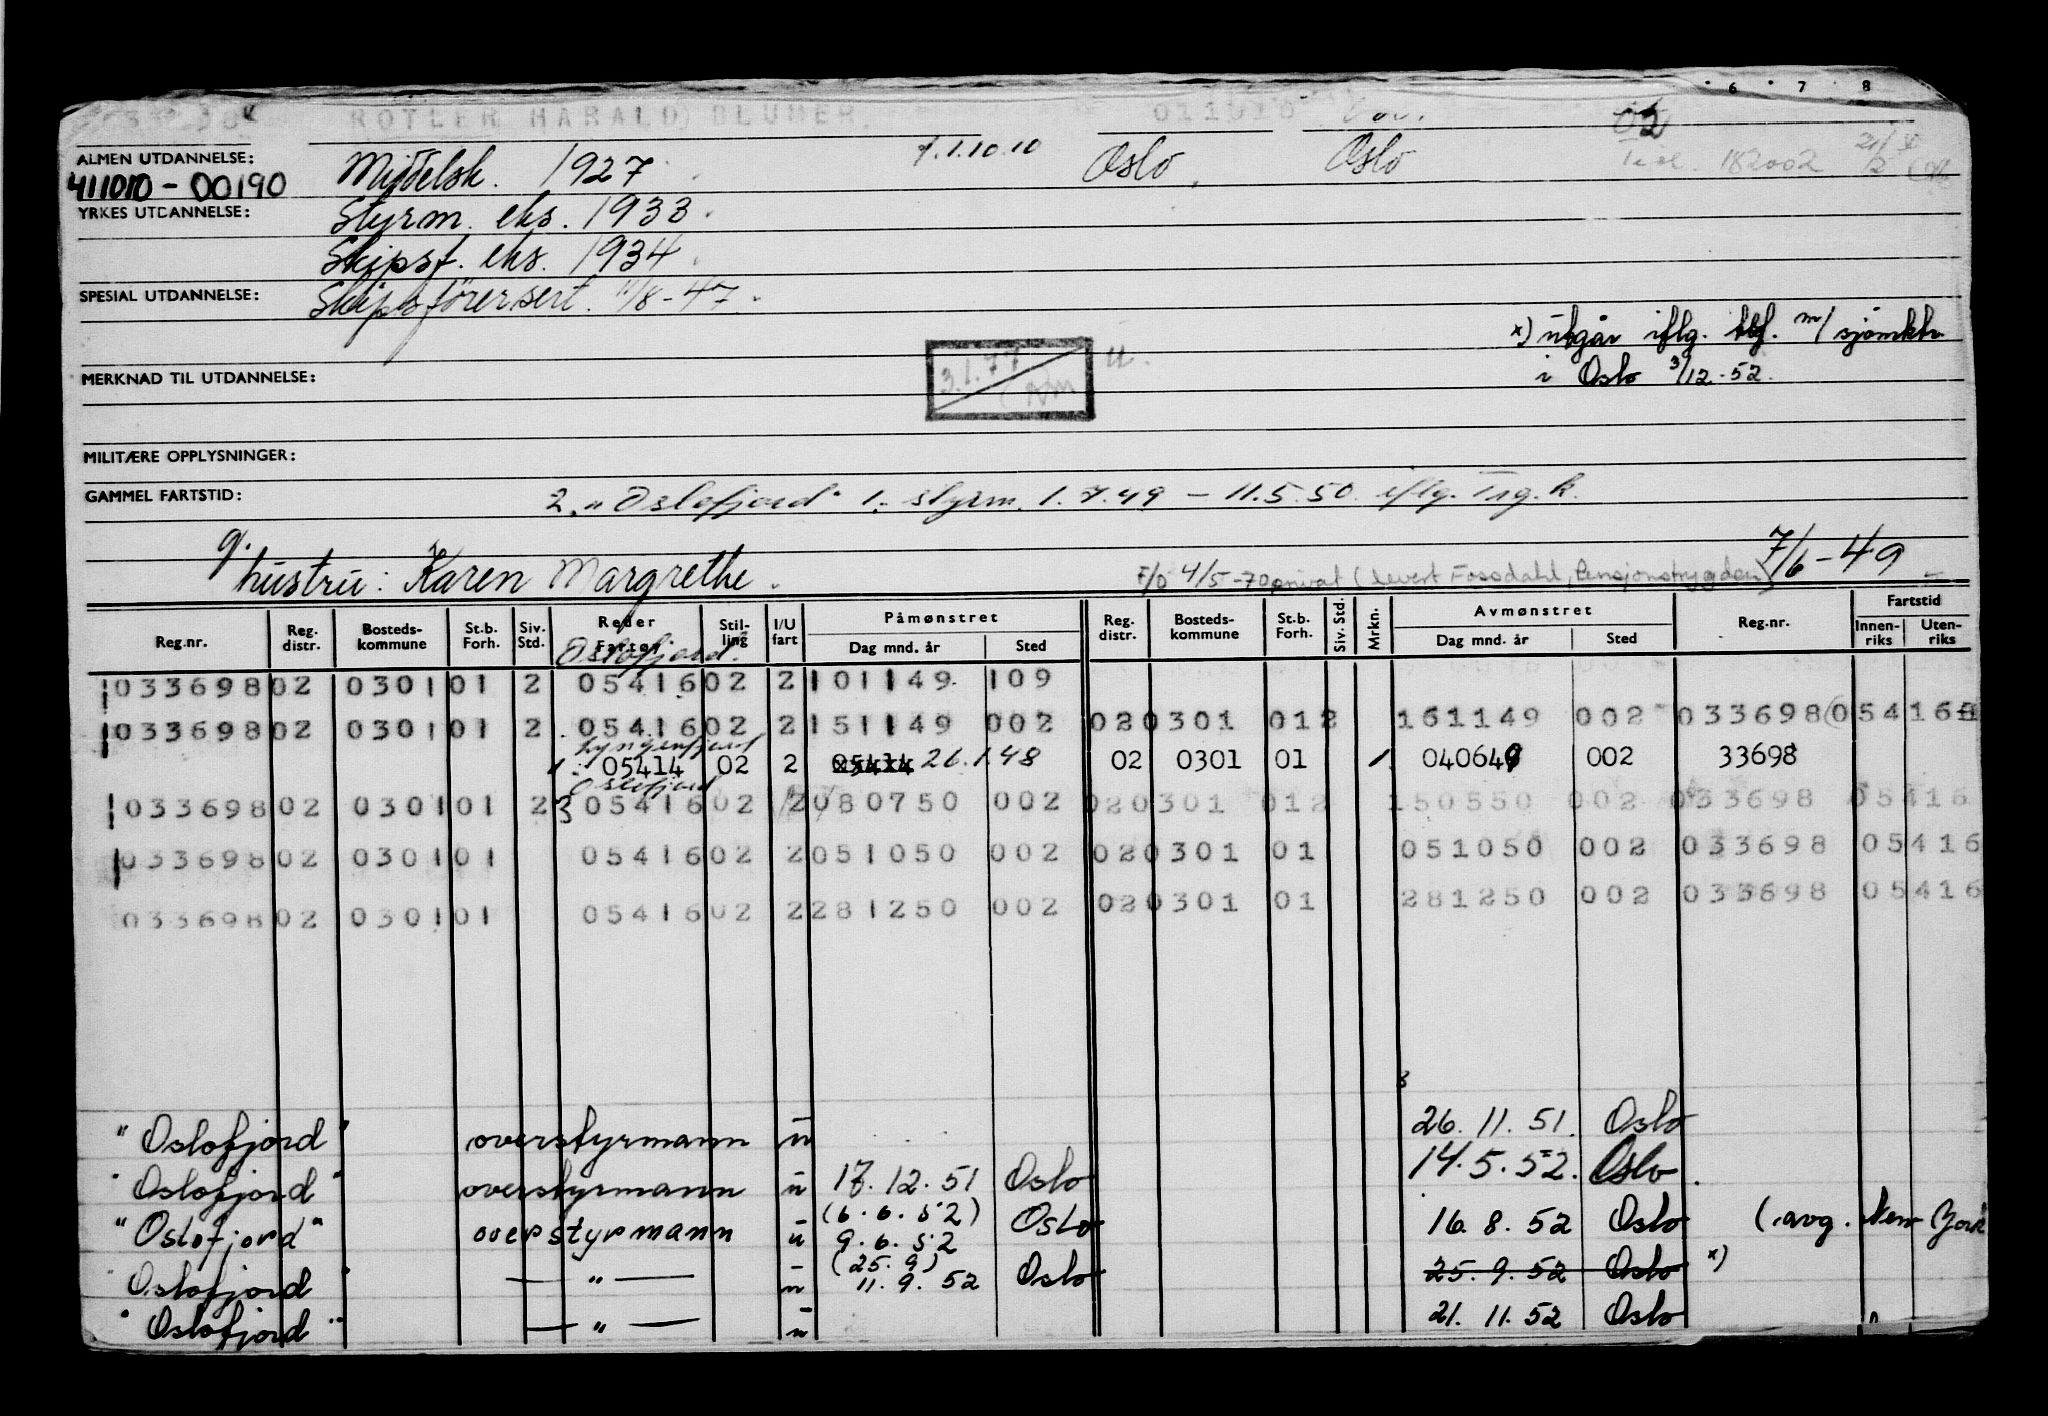 6 7 8
ROTLER HARALD BLUHER. 011010
ALMEN UTDANNELSE: Middelsk. 1927. f.1.10.10 Oslo, Oslo 182002
411010-00190
YRKES UTDANNELSE: Styrm. eks. 1933.
Skipsf. eks. 1934.
SPESIAL UTDANNELSE: Skipsførersert. 11/8-47.
x) utgår iflg. tlf. m/ sjømktr.
i Oslo 3/12.52.
3.1.77 u.
MERKNAD TIL UTDANNELSE:
MILITÆRE OPPLYSNINGER:
GAMMEL FARTSTID: 2. "Oslofjord" 1. styrm. 1.7.49 – 11.5.50. iflg. Trg.k.
g.
hustru: Karen Margrethe. F/O 4/5-70 privat (levert Fossdahl, Pensjonstrygden) 7/6-49
Reg.nr. Reg. distr. Bosteds-kommune St.b. Forh. Siv. Std. Reder Fartøy Stil-ling I/U fart Påmønstret Dag mnd. år Sted Reg. distr. Bosteds-kommune St.b. Forh. Siv. Std. Mrkn. Avmønstret Dag mnd. år Sted Reg.nr. Fartstid Innen-riks Uten-riks
Oslofjord.
033698 02 0301 01 2 05416 02 2 101149 109
033698 02 0301 01 2 05416 02 2 151149 002 02 0301 01 2 161149 002 033698 05416
Lyngenfjord
05414 02 2 05414 26.1.48 02 0301 01 1 040649 002 33698
Oslofjord
033698 02 0301 01 2 3 05416 02 2 080750 002 02 0301 01 2 150550 002 033698 05416
033698 02 0301 01 05416 02 2 051050 002 02 0301 01 051050 002 033698 05416
033698 02 0301 01 05416 02 2 281250 002 02 0301 01 281250 002 033698 05416
"Oslofjord" overstyrmann u 26.11.51. Oslo
"Oslofjord" overstyrmann u 17.12.51 Oslo 14.5.52. Oslo.
"Oslofjord" overstyrmann u (6.6.52) 9.6.52 Oslo 16.8.52 Oslo (avg. New York
"Oslofjord" — " — u (25.9) 11.9.52 Oslo 25.9.52 Oslo x)
"Oslofjord" — " — u 21.11.52 Oslo